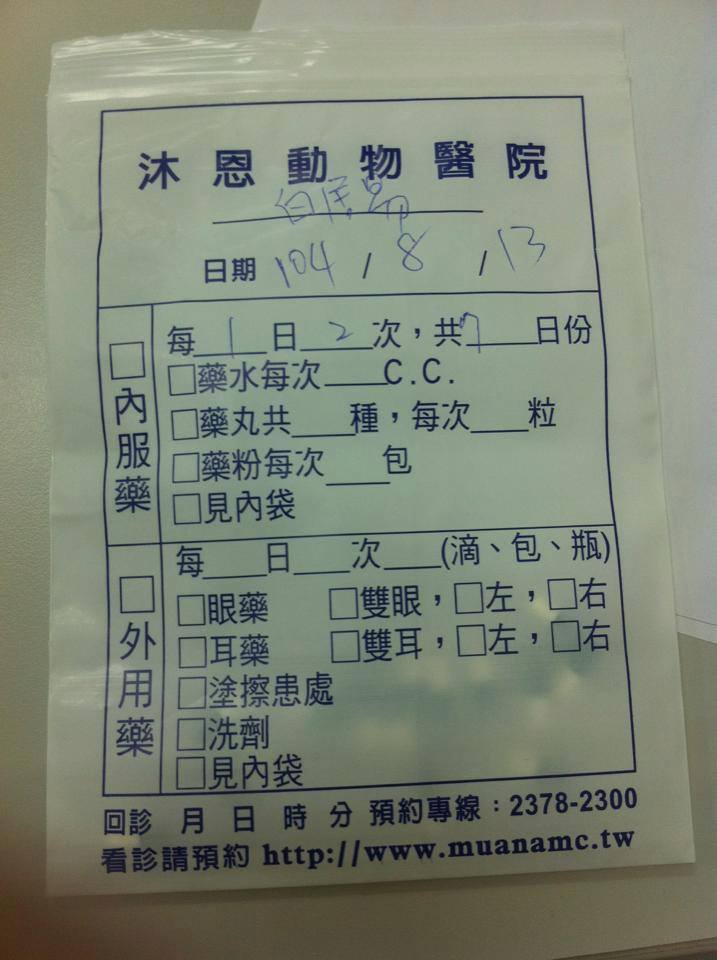 沐恩動物醫院
白居易
日期 104 / 8 / 13
□內服藥
每 1 日 2 次，共 7 日份
□藥水每次____C.C.
□藥丸共____種，每次____粒
□藥粉每次____包
□見內袋
□外用藥
每____日____次____(滴、包、瓶)
□眼藥 □雙眼，□左，□右
□耳藥 □雙耳，□左，□右
□塗擦患處
□洗劑
□見內袋
回診 月 日 時 分 預約專線：2378-2300
看診請預約 http://www.muanamc.tw